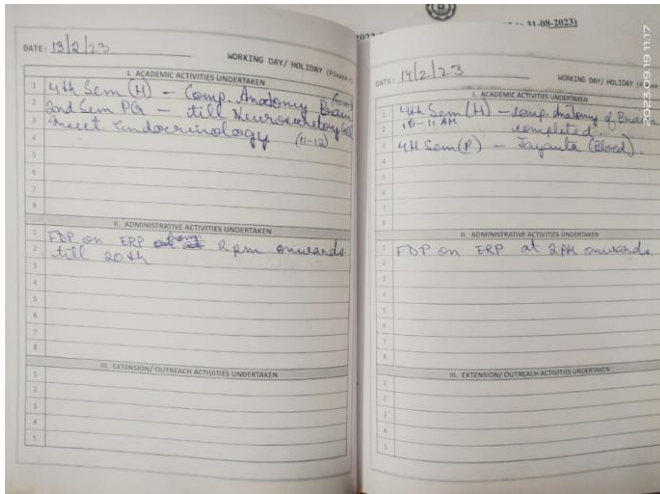 31-08-2023)
DATE: 13/2/23
WORKING DAY/ HOLIDAY
I. ACADEMIC ACTIVITIES UNDERTAKEN
1 4th Sem (H) - Comp. Anatomy Brain
2 2nd Sem PG - till Neurosecretory
3 Insect Endocrinology (11-12)
4
5
6
7
8
II. ADMINISTRATIVE ACTIVITIES UNDERTAKEN
1 FDP on ERP from 2 pm onwards
2 till 20th
3
4
5
6
7
8
III. EXTENSION/ OUTREACH ACTIVITIES UNDERTAKEN
1
2
3
4
5
DATE: 14/2/23
WORKING DAY/ HOLIDAY
I. ACADEMIC ACTIVITIES UNDERTAKEN
1 4th Sem (H) - Comp. Anatomy of Brain
2 10-11 AM completed.
3 4th Sem (P) - Jayanta (Blood).
4
5
6
7
8
II. ADMINISTRATIVE ACTIVITIES UNDERTAKEN
1 FDP on ERP at 2PM onwards
2
3
4
5
6
7
8
III. EXTENSION/ OUTREACH ACTIVITIES UNDERTAKEN
1
2
3
4
5
2023.09.19 11:17